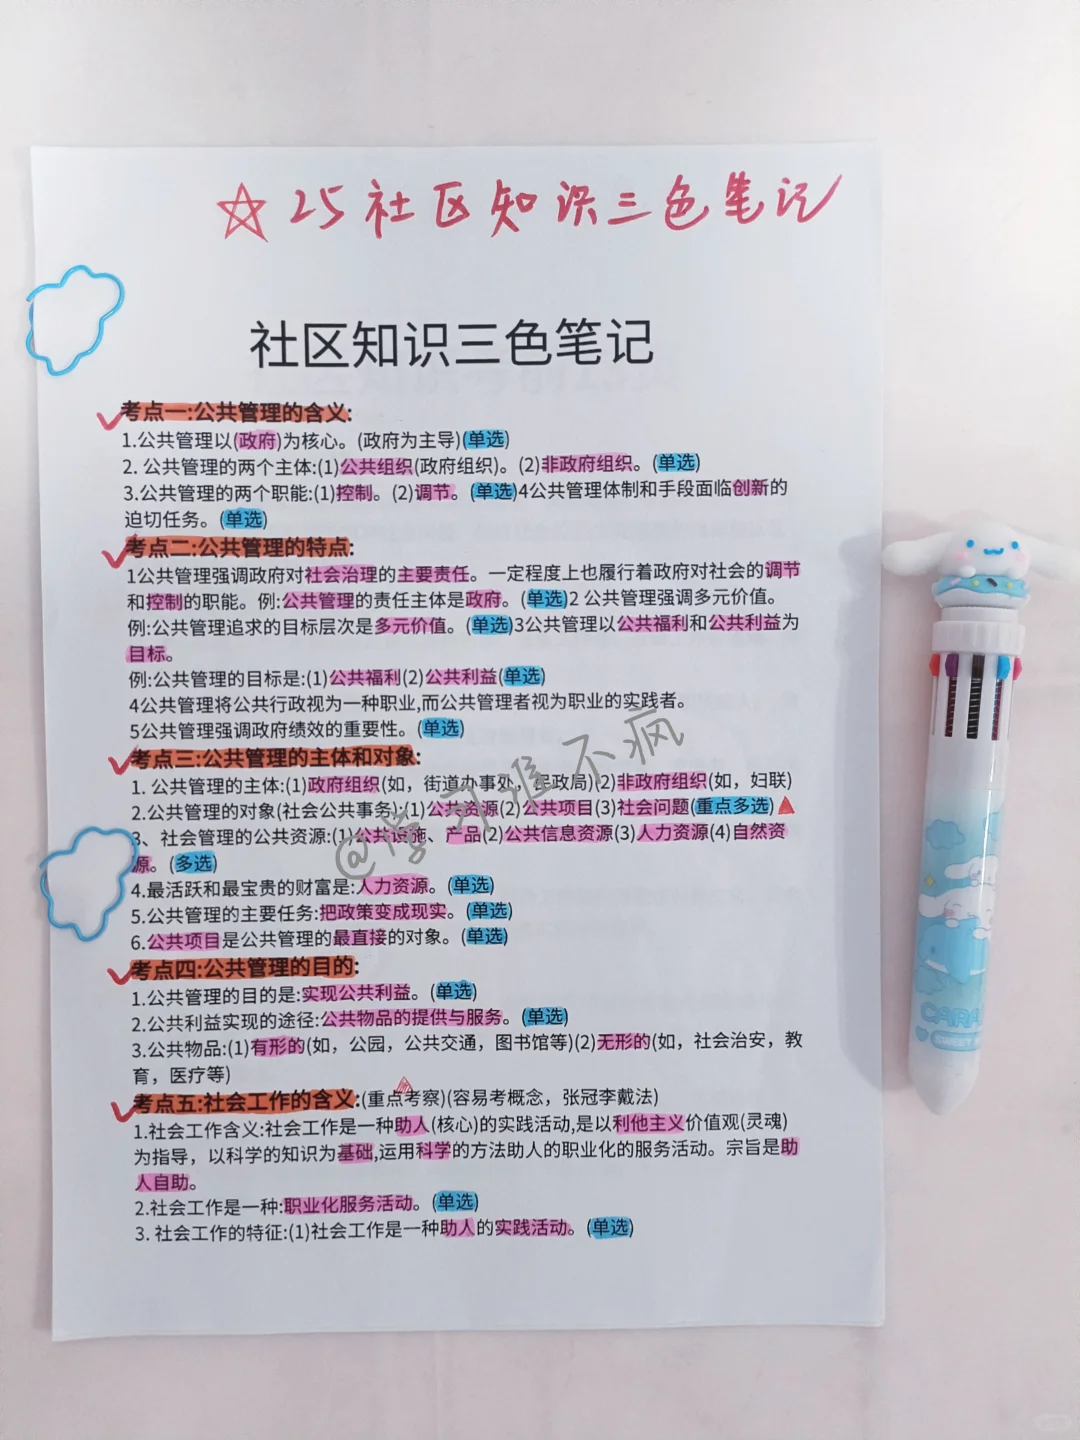 ☆25社区知识三色笔记
社区知识三色笔记
考点一:公共管理的含义:
1.公共管理以(政府)为核心。(政府为主导)(单选)
2. 公共管理的两个主体:(1)公共组织(政府组织)。(2)非政府组织。(单选)
3.公共管理的两个职能:(1)控制。(2)调节。(单选)4公共管理体制和手段面临创新的
迫切任务。(单选)
考点二:公共管理的特点:
1公共管理强调政府对社会治理的主要责任。一定程度上也履行着政府对社会的调节
和控制的职能。例:公共管理的责任主体是政府。(单选)2 公共管理强调多元价值。
例:公共管理追求的目标层次是多元价值。(单选)3公共管理以公共福利和公共利益为
目标。
例:公共管理的目标是:(1)公共福利(2)公共利益(单选)
4公共管理将公共行政视为一种职业,而公共管理者视为职业的实践者。
5公共管理强调政府绩效的重要性。(单选)
考点三:公共管理的主体和对象:
1. 公共管理的主体:(1)政府组织(如，街道办事处，民政局)(2)非政府组织(如，妇联)
2.公共管理的对象(社会公共事务):(1)公共资源(2)公共项目(3)社会问题(重点多选)
3、社会管理的公共资源:(1)公共设施、产品(2)公共信息资源(3)人力资源(4)自然资
源。(多选)
4.最活跃和最宝贵的财富是:人力资源。(单选)
5.公共管理的主要任务:把政策变成现实。(单选)
6.公共项目是公共管理的最直接的对象。(单选)
考点四:公共管理的目的:
1.公共管理的目的是:实现公共利益。(单选)
2.公共利益实现的途径:公共物品的提供与服务。(单选)
3.公共物品:(1)有形的(如，公园，公共交通，图书馆等)(2)无形的(如，社会治安，教
育，医疗等)
考点五:社会工作的含义:(重点考察)(容易考概念，张冠李戴法)
1.社会工作含义:社会工作是一种助人(核心)的实践活动,是以利他主义价值观(灵魂)
为指导，以科学的知识为基础,运用科学的方法助人的职业化的服务活动。宗旨是助
人自助。
2.社会工作是一种:职业化服务活动。(单选)
3. 社会工作的特征:(1)社会工作是一种助人的实践活动。(单选)
@学习谁不疯